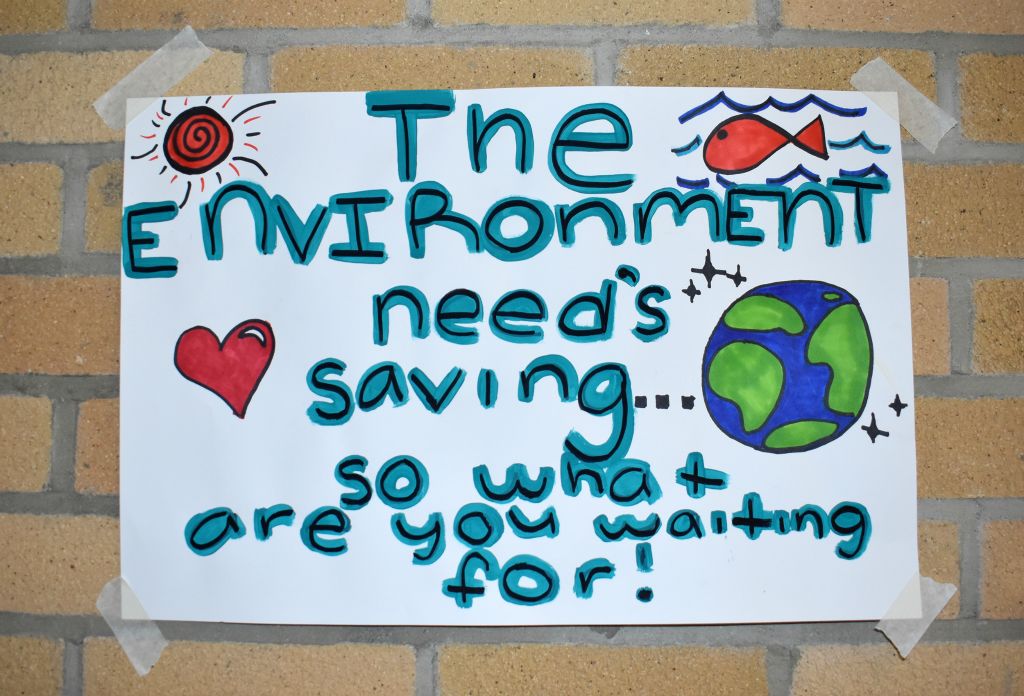 The
ENVIRonmENT
need's
saving...
so what
are you waiting
for!